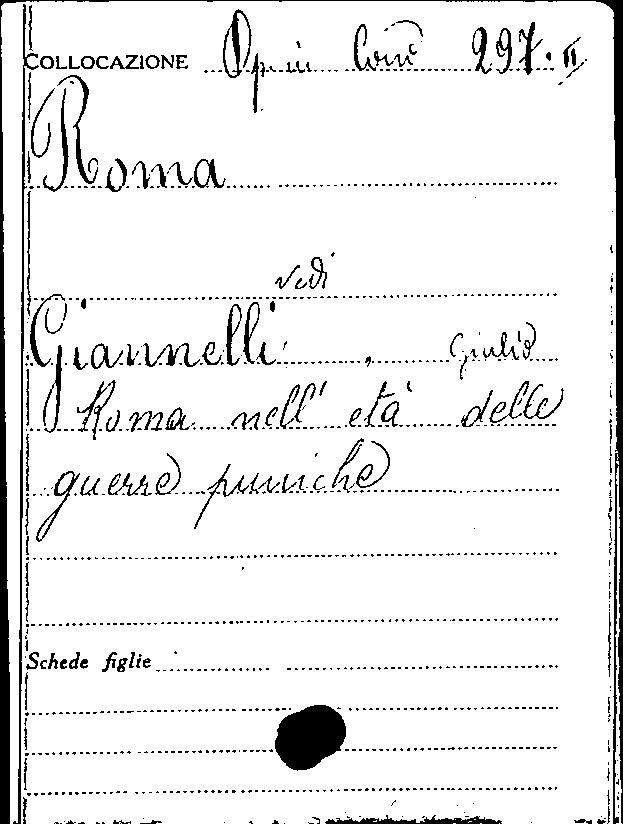 COLLOCAZIONE Op. in Cont 297. II
Roma
vedi
Giannelli, Giulio
Roma nell' età delle
guerre puniche
Schede figlie